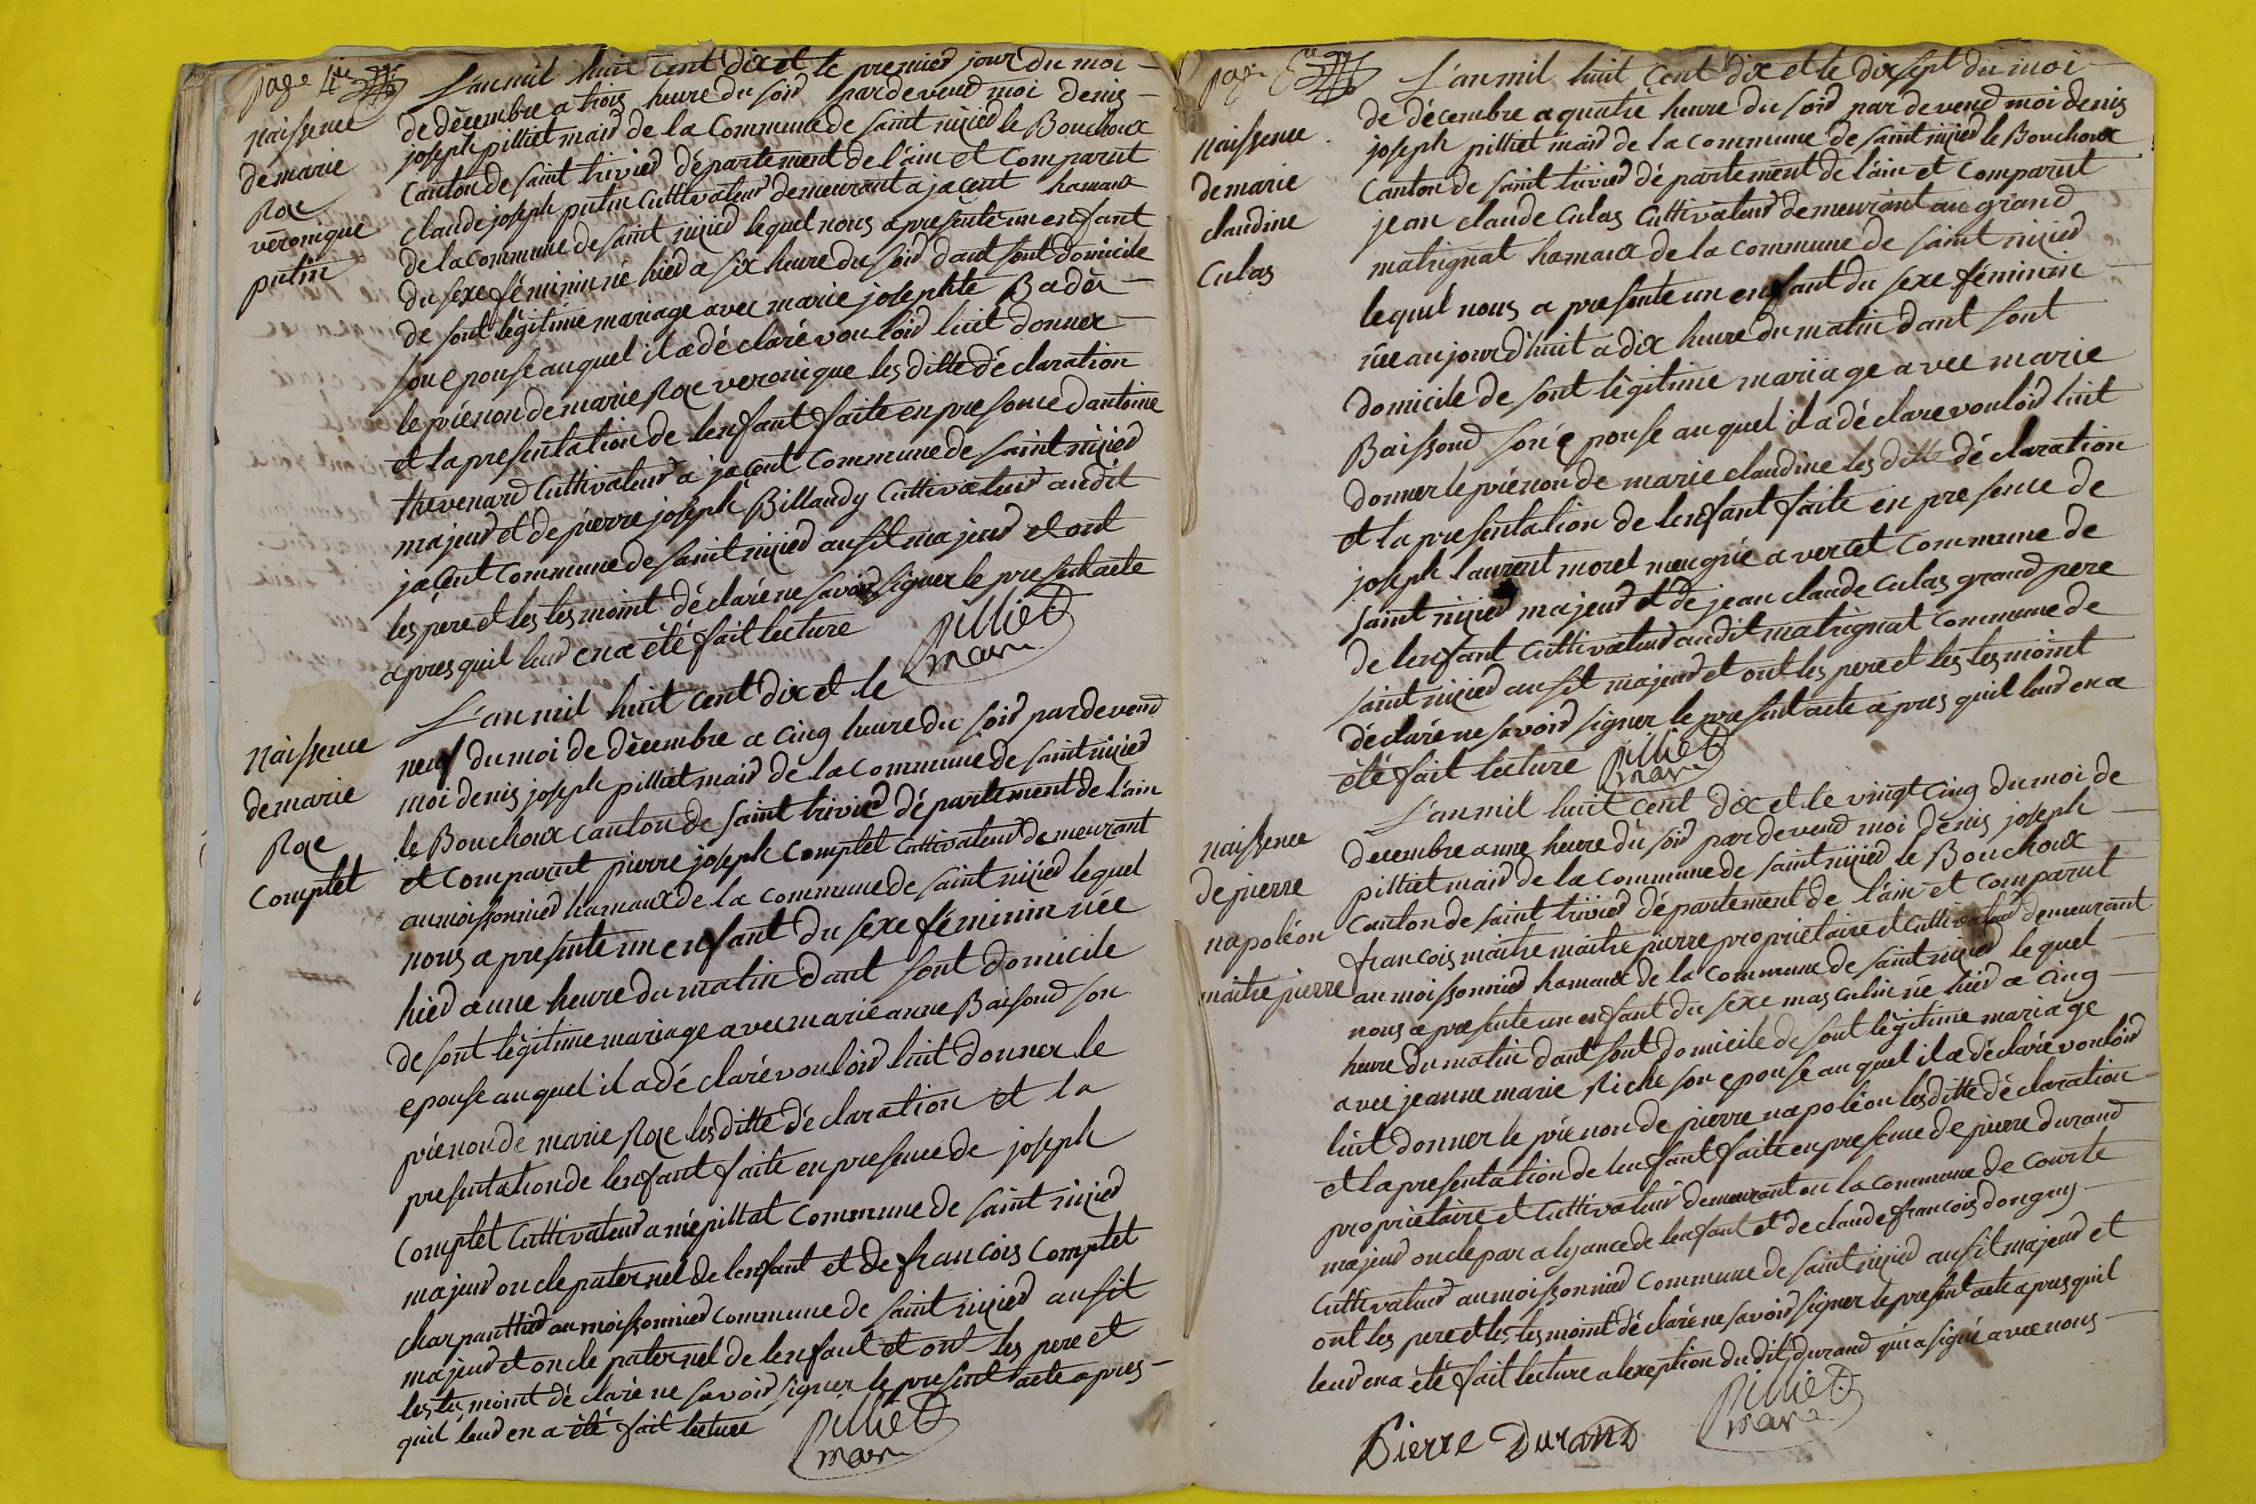 page 4e
naissence
de marie
Roe
véronique
putin
L'an mil huit cent dix et le premier jour du moi
de décembre a trois heure du soir pardevend moi denis
joseph pilliet mair de la Commune de saint nizier le Bouchoux
Canton de saint trivier département de l'ain et Comparut
claude joseph putin Cultivateur demeurant a jacent hamaux
de la commune de saint nizier lequel nous a presenté un enfant
du sexe féminin né hier a six heure du soir dant sont domicile
de sont légitime mariage avec marie josephte Badès
son epouse auquel il a déclaré vouloir luit donner
le prénon de marie Roe veronique les ditte déclaration
et la presentation de lenfant faite en presence dantoine
thevenard Cultivateur a jacent Commune de saint nizier
majeur et de pierre joseph Billaudy Cultivateur audit
jacent Commune de saint nizier ausit majeur et ont
les père et les tesmoint déclaré ne savoir signer le present acte
apres quil leur en a été fait lecture
pilliet
mair
naissence
de marie
Roe
Complet
L'an mil huit cent dix et le
neuf du moi de décembre a cinq heure du soir pardevend
moi denis joseph pilliet mair de la commune de saint nizier
le Bouchoux canton de saint trivier département de l'ain
et Comparut pierre joseph Complet Cultivateur demeurant
au moissonnier hamaux de la commune de saint nizier lequel
nous a presente un enfant du sexe féminin née
hier a une heure du matin dant sont domicile
de sont légitime mariage avec marie anne Baisond son
epouse auquel il a déclaré vouloir luit donner le
prénon de marie Roe les ditte déclaration et la
presentation de lenfant faite en presence de joseph
Complet Cultivateur a népillat Commune de saint nizier
majeur oncle paternel de lenfant et de francois Complet
charpanttier au moissonnier commune de saint nizier ausit
majeur et oncle paternel de lenfant et ont les pere et
les tesmoint déclaré ne savoir signer le présent acte apres
quil leur en a été fait lecture
pilliet
mair
page
naissence
de marie
claudine
Culas
L'an mil huit cent dix et le dix sept du moi
de décembre a quatre heure du soir par devend moi denis
joseph pilliet mair de la commune de saint nizier le Bouchoux
Canton de saint trivier département de l'ain et Comparut
jean claude Culas Cultivateur demeurant au grand
matrignat hamaux de la commune de saint nizier
lequel nous a presenté un enfant du sexe féminin
née aujourd'huit a dix heure du matin dant sont
domicile de sont légitime mariage avec marie
Baissond son épouse auquel il a déclare vouloir luit
donner le prénon de marie claudine les ditte déclaration
et la presentation de lenfant faite en presence de
joseph laurent morel meugnie a vercet Commune de
saint nizier majeur et de jean claude Culas grand pere
de lenfant Cultivateur audit matrignat Commune de
saint nizier ausit majeur et ont les pere et les tesmoint
déclaré ne savoir signer le present acte apres quil leur en a
été fait lecture
pilliet
mair
naissence
de pierre
napoléon
maitre pierre
L'an mil huit cent dix et le vingt Cinq du moi de
decembre a une heure du soir par devend moi denis joseph
pilliet mair de la Commune de saint nizier le Bouchoux
Canton de saint trivier département de l'ain et Comparut
francois maitre maitre pierre proprietaire et Cultivateur demeurant
au moissonnier hamaux de la Commune de saint nizier le quel
nous a presente un enfant du sexe masculin né hier a Cinq
heure du matin dant sont domicile de sont légitime mariage
avec jeanne marie Riche son epouse au quel il a déclaré vouloir
luit donner le prénon de pierre napoléon les ditte déclaration
et la presentation de lenfant faite en presence de pierre durand
proprietaire et Cultivateur demeurant en la Commune de Courte
majeur oncle par alyance de lenfant et de claude francois dongny
Cultivateur au moissonnier Commune de saint nizier ausit majeur et
ont les pere et les tesmoint déclaré ne savoir signer le present acte apres quil
leur en a été fait lecture a lexeption du dit durand qui a signé avec nous
pilliet
mair
Pierre Durand